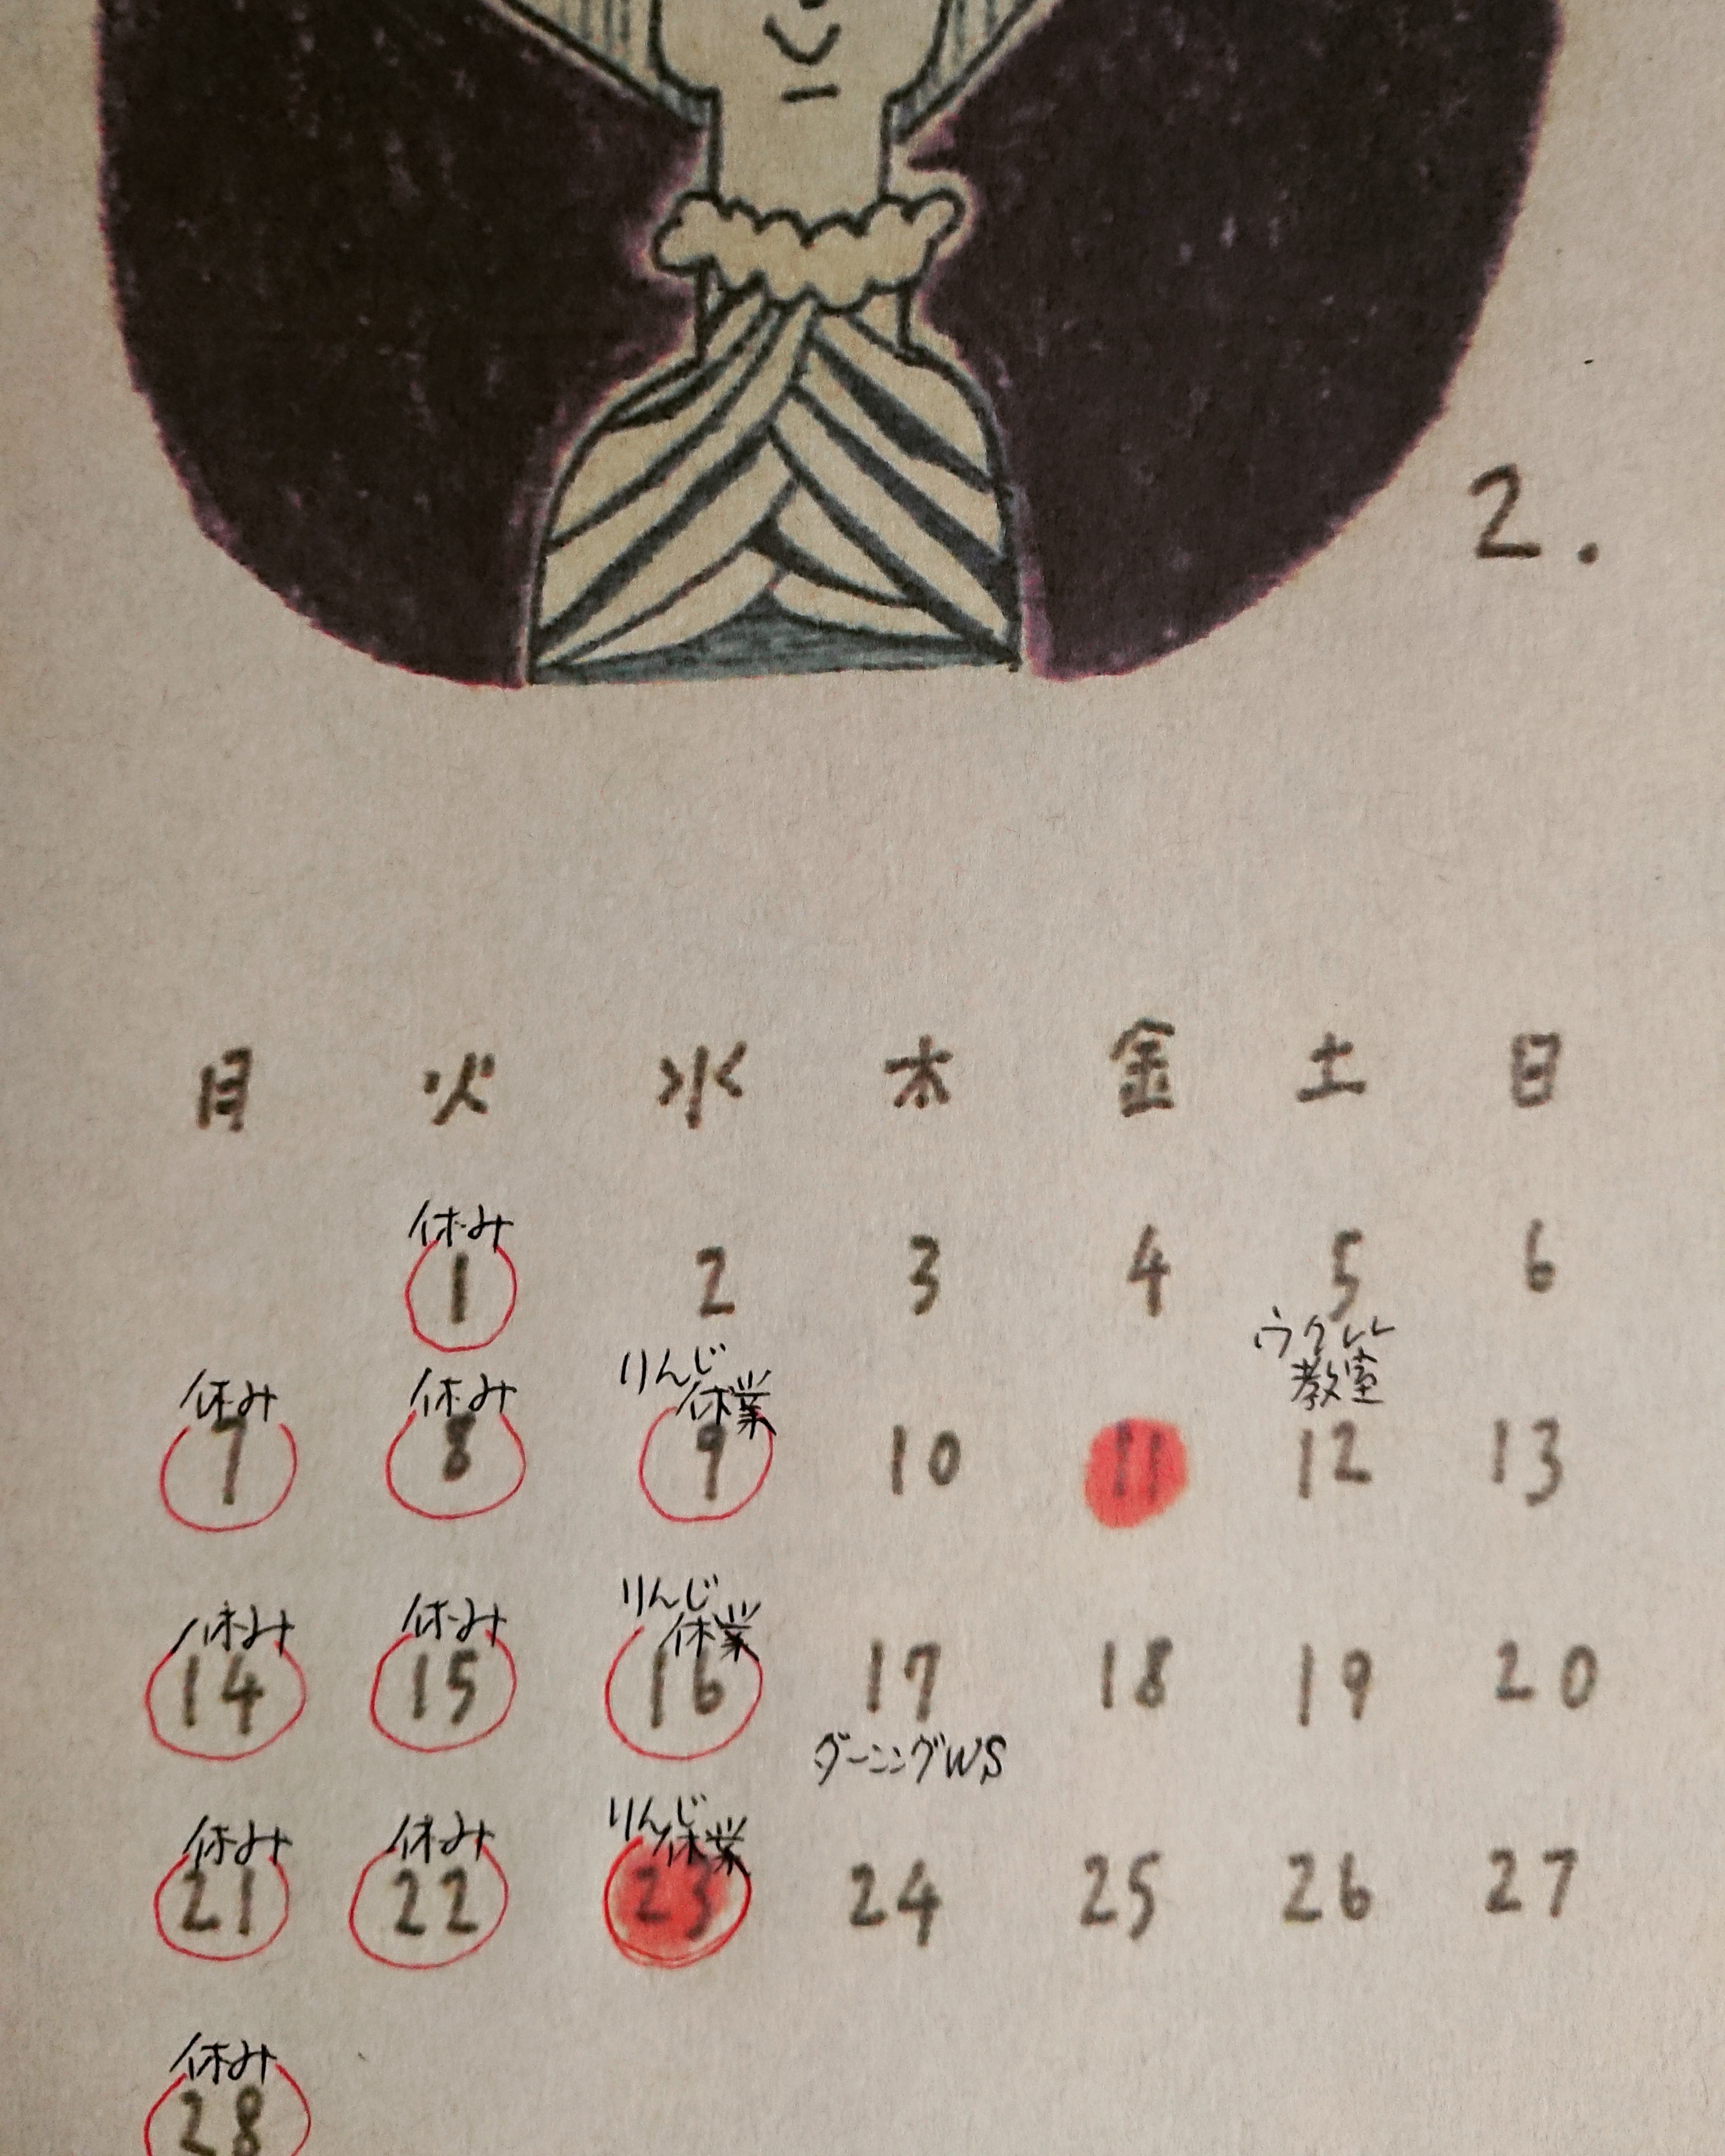 2.
月 火 水 木 金 土 日
休み
1 2 3 4 5 6
ウクレレ
教室
休み 休み りんじ
休業
7 8 9 10 11 12 13
休み 休み りんじ
休業
14 15 16 17 18 19 20
ダーニングWS
休み 休み りんじ
休業
21 22 23 24 25 26 27
休み
28